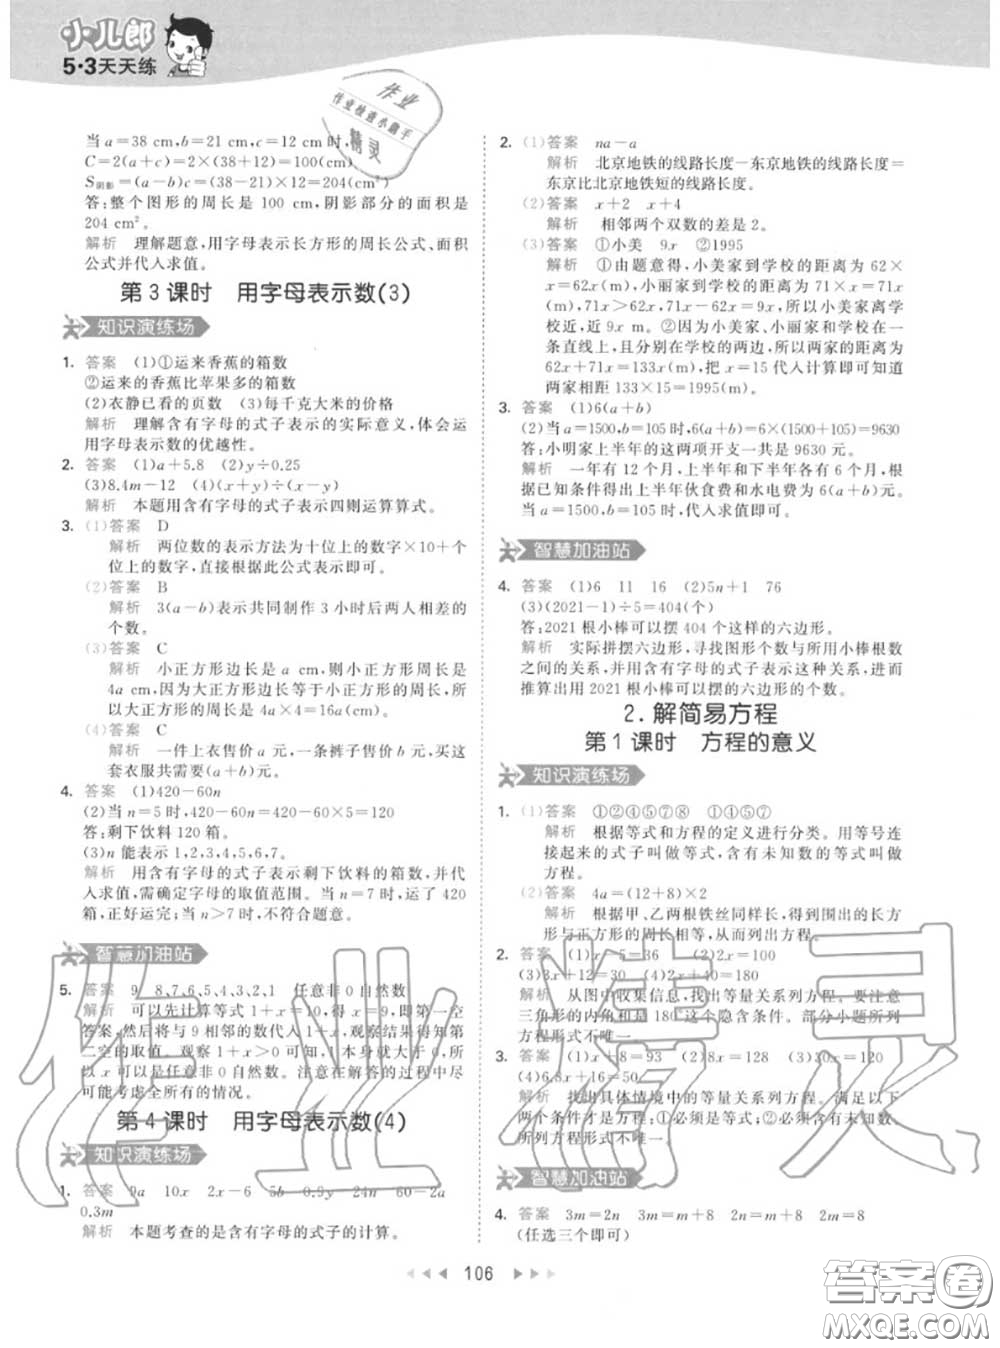 小儿郎
5·3天天练
作业
作业检查小助手
精灵
当a=38 cm,b=21 cm,c=12 cm时,
C=2(a+c)=2×(38+12)=100(cm)
S阴影=(a-b)c=(38-21)×12=204(cm²)
答:整个图形的周长是 100 cm,阴影部分的面积是
204 cm²。
解析 理解题意,用字母表示长方形的周长公式、面积
公式并代入求值。
第3课时 用字母表示数(3)
知识演练场
1. 答案 (1)①运来香蕉的箱数
②运来的香蕉比苹果多的箱数
(2)衣静已看的页数 (3)每千克大米的价格
解析 理解含有字母的式子表示的实际意义,体会运
用字母表示数的优越性。
2. 答案 (1)a+5.8 (2)y÷0.25
(3)8.4m-12 (4)(x+y)÷(x-y)
解析 本题用含有字母的式子表示四则运算算式。
3. (1)答案 D
解析 两位数的表示方法为十位上的数字×10+个
位上的数字,直接根据此公式表示即可。
(2)答案 B
解析 3(a-b)表示共同制作3小时后两人相差的
个数。
(3)答案 C
解析 小正方形边长是a cm,则小正方形周长是
4a cm,因为大正方形边长等于小正方形的周长,所
以大正方形的周长是 4a×4=16a(cm)。
(4)答案 C
解析 一件上衣售价a元,一条裤子售价b元,买这
套衣服共需要(a+b)元。
4. 答案 (1)420-60n
(2)当n=5时,420-60n=420-60×5=120
答:剩下饮料120箱。
(3)n能表示1,2,3,4,5,6,7。
解析 用含有字母的式子表示剩下饮料的箱数,并代
入求值,需确定字母的取值范围。当n=7时,运了420
箱,正好运完;当n>7时,不符合题意。
智慧加油站
5. 答案 9 8,7,6,5,4,3,2,1 任意非0自然数
解析 可以先计算等式1+x=10,得x=9,即第一空
答案,然后将与9相邻的数代入1+x,观察结果得知第
二空的取值。观察1+x>0可知,1本身就大于0,所
以x可以是任意非0自然数。注意在解答的过程中尽
可能考虑全所有的情况。
第4课时 用字母表示数(4)
知识演练场
1. 答案 9a 10x 2x-6 5b 0.9y 24n 60-2a
0.3m
解析 本题考查的是含有字母的式子的计算。
2. (1)答案 na-a
解析 北京地铁的线路长度-东京地铁的线路长度=
东京比北京地铁短的线路长度。
(2)答案 x+2 x+4
解析 相邻两个双数的差是2。
(3)答案 ①小美 9x ②1995
解析 ①由题意得,小美家到学校的距离为62×
x=62x(m),小丽家到学校的距离为71×x=71x
(m),71x>62x,71x-62x=9x,所以小美家离学
校近,近9x m。②因为小美家、小丽家和学校在一
条直线上,且分别在学校的两边,所以两家的距离为
62x+71x=133x(m),把x=15代入计算即可知道
两家相距133×15=1995(m)。
3. 答案 (1)6(a+b)
(2)当a=1500,b=105时,6(a+b)=6×(1500+105)=9630
答:小明家上半年的这两项开支一共是9630元。
解析 一年有12个月,上半年和下半年各有6个月,根
据已知条件得出上半年伙食费和水电费为6(a+b),
当a=1500,b=105时,代入求值即可。
智慧加油站
4. 答案 (1)6 11 16 (2)5n+1 76
(3)(2021-1)÷5=404(个)
答:2021根小棒可以摆404个这样的六边形。
解析 实际拼摆六边形,寻找图形个数与所用小棒根数
之间的关系,并用含有字母的式子表示这种关系,进而
推算出用2021根小棒可以摆的六边形的个数。
2.解简易方程
第1课时 方程的意义
知识演练场
1. (1)答案 ①②④⑤⑦⑧ ①④⑤⑦
解析 根据等式和方程的定义进行分类。用等号连
接起来的式子叫做等式,含有未知数的等式叫做
方程。
(2)答案 4a=(12+8)×2
解析 根据甲、乙两根铁丝同样长,得到围出的长方
形与正方形的周长相等,从而列出方程。
2. 答案 (1)x÷5=36 (2)2x=100
(3)3x+12=30 (4)2x=180
解析 从图中收集信息,找出等量关系列方程。要注意
三角形的内角和是180°这个隐含条件。部分小题所列
方程形式不唯一。
3. 答案 (1)x+8=93 (2)8x=128 (3)30x=120
(4)6.8x+16=50
解析 找出具体情境中的等量关系列方程。满足以下
两个条件才是方程:①必须是等式;②必须含有未知数。
所列方程形式不唯一。
智慧加油站
4. 答案 3m=2n 3m=m+8 2n=m+8 2m=8
(任选三个即可)
106
作业精灵
答案卷
MXQE.COM